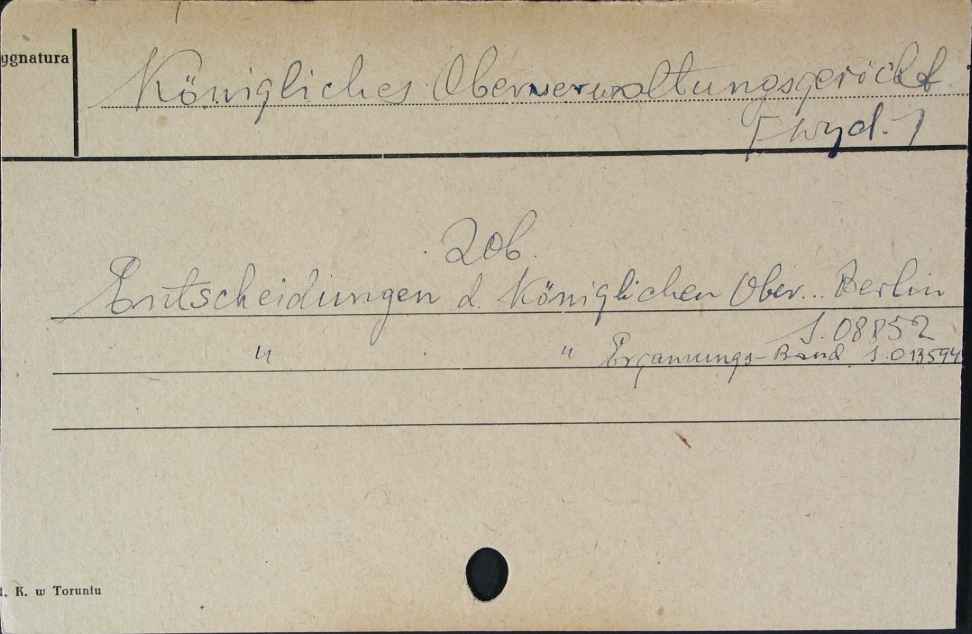 ygnatura
Königliches Oberverwaltungsgericht
[wyd.]
Zob.
Entscheidungen d. Königlichen Ober... Berlin
S.08852
" " Ergänzungs-Band S.013594
t. K. w Toruniu